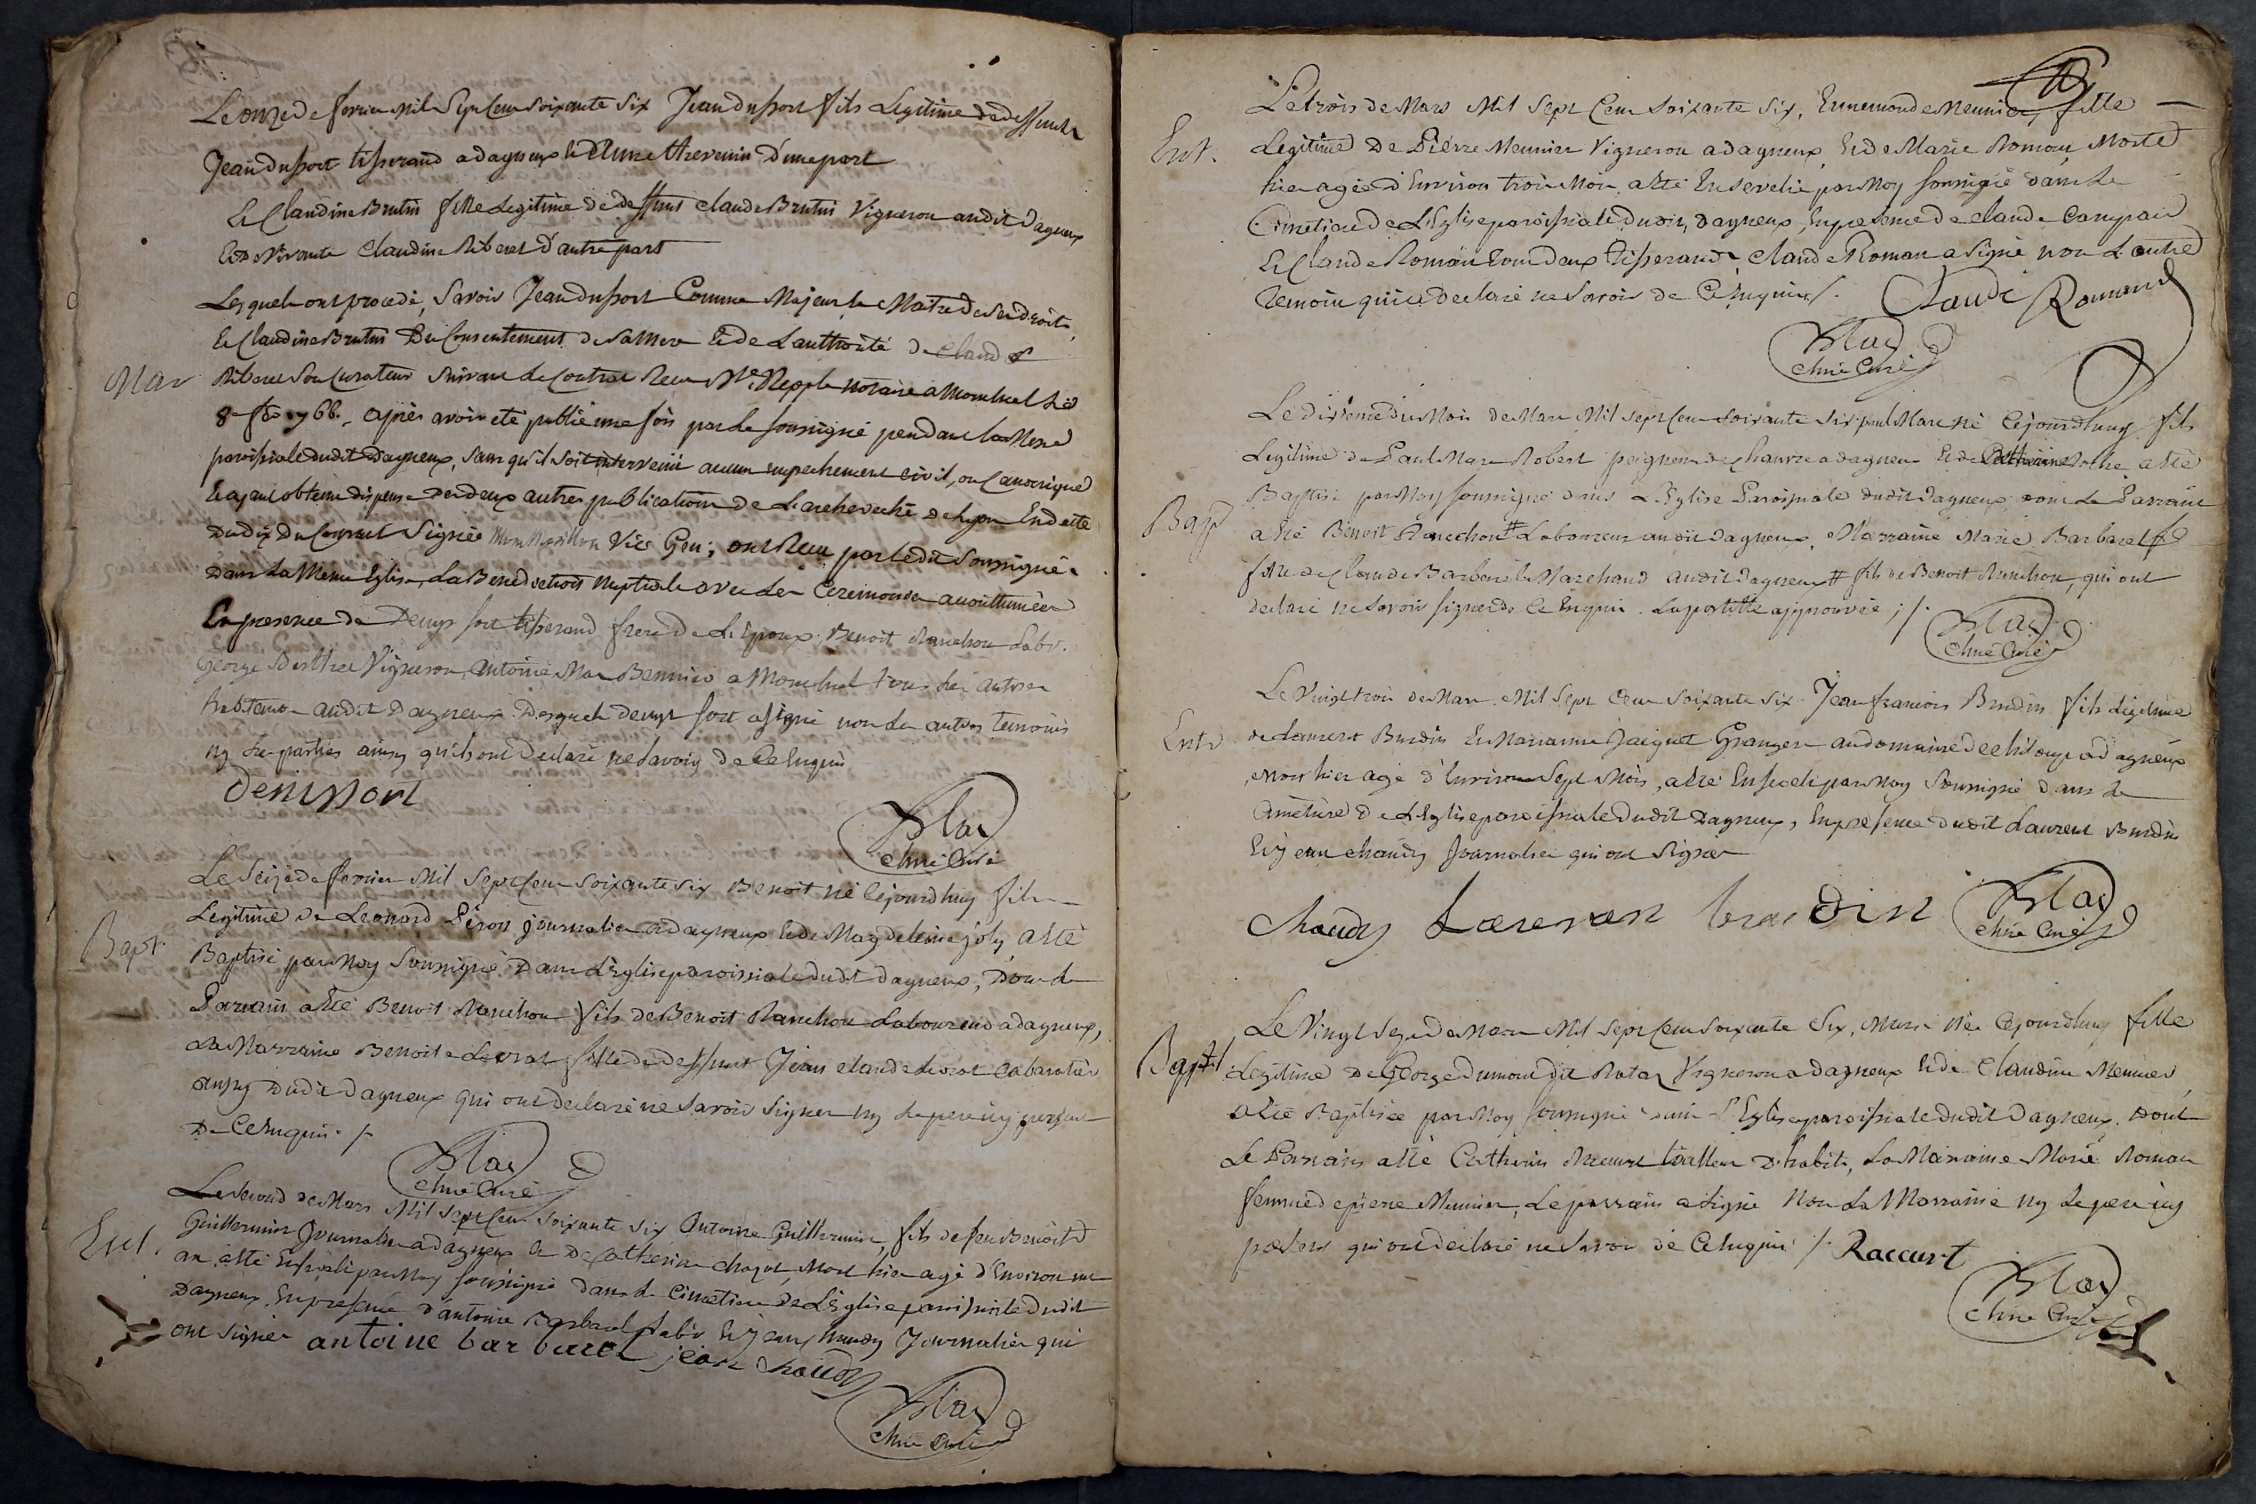 Le onze de fevrier Mil Sept Cent Soixante Six Jean duport fils Legitime de deffunt
Jean duport tisserand a dagneux et d'Anne thevenin d'une part
Et Claudine Brutin fille Legitime de deffunt Claude Brutin Vigneron audit dagneux
Et de Vivante Claudine Riberet d'autre part
Lesquels ont procedé, Savoir Jean duport Comme Majeur et Maitre de Ses droits,
Et Claudine Brutin Du Consentement de Sa Mere et de L'authorité de Claude
Mar
Riberet Son Curateur Suivant Le Contrat Recu Me notaire a Montluel Le
8e 1766. après avoir eté publié une fois par Le Soussigné pendant La Messe
paroissiale dudit Dagneux, Sans qu'il Soit intervenu aucun empechement civil, ou Canonique
Et ayant obtenu dispense des deux autres publications de L'archeveché de Lyon En datte
Du dix du Courant Signée Vic Gen; ont Recu par Ledit Soussigné
Dans La Meme Eglise La Benediction Nuptiale avec Les Ceremonies accoutumées
En presence de Denys port tisserand frere de L'Epoux. Benoit Ranchon Labr.
George Vigneron, antoine a Montluel tous Les autres
habitans audit Dagneux Desquels denys port a signé non Les autres temoins
ny Les parties ainsy qu'ils ont Declaré ne Savoir de Ce Enquis
Denis port
Blad
Chne Curé
Le Seize de fevrier Mil Sept Cent Soixante Six Benoit né Cejourdhuy fils
Legitime de Leonard Peron journalier a dagneux et de Magdeleine joly, a eté
Bapt.
Baptisé par Moy Soussigné Dans L'Eglise paroissiale dudit Dagneux, Dont Le
Parrain a eté Benoit Ranchon fils de Benoit Ranchon Laboureur a dagneux,
La Marraine Benoite fille de deffunt Jean Claude Cabaretier
aussy Dudit Dagneux qui ont declaré ne Savoir Signer ny Le pere icy present
De Ce Enquis ./.
Blad
Chne Curé
Le Second de Mars Mil Sept Cent Soixante Six Antoine Guillermin, fils de feu Benoît
Ent.
Guillermin Journalier a dagneux et De Catherine Mort hier agé d'Environ un
an, a eté Enseveli par Moy Soussigné Dans Le Cimetiere De L'Eglise paroissiale dudit
Dagneux. En presence d'antoine Barbaret Labr Et Jean Chaudy Journalier qui
ont signés antoine barbaret jean chaudy
Blad
Chne Curé
Le trois de Mars Mil Sept Cent Soixante Six, Ennemonde Meunier, fille
Ent.
Legitime De Pierre Meunier Vigneron a dagneux, Et de Marie Roman, Morte
hier agée d'Environ trois Mois, a eté Ensevelie par Moy Soussigné dans Le
Cimetiere de L'Eglise paroissiale dudit, dagneux, En presence de Claude
Et Claude Roman tous deux tisserands, Claude Roman a Signé non L'autre
temoin qui a declaré ne Savoir de Ce Enquis ./. Claude Romand
Blad
Chne Curé
Le dixieme du Mois de Mars Mil Sept Cent Soixante Six paul Marc né Cejourdhuy fils
Legitime de Paul Marc Robert peigneur de Chanvre a dagneux et de Catherine a eté
Bapt
Baptisé par Moy Soussigné dans L'Eglise Paroissiale dudit dagneux, dont Le Parrain
a eté Benoit Ranchon # Laboureur audit dagneux, Marraine Marie Barbaret
fille de Claude Barbaret Marchand audit dagneux # fils de Benoit Ranchon, qui ont
declaré ne Savoir signer de Ce Enquis. La postille approuvée ; ./.
Blad
Chne Curé
Le Vingt trois de Mars Mil Sept Cent Soixante Six. Jean francois Burdin fils Legitime
Ent
de Laurent Burdin Et Marianne Jacquet Granger au domaine de a dagneux
Mort hier agé d'Environ Sept Mois, a eté Enseveli par Moy Soussigné dans Le
Cimetiere De L'Eglise paroissiale dudit Dagneux, En presence dudit Laurent Burdin
Et Jean chaudy Journalier qui ont Signés
Chaudy Laurent burdin Blad
Chne Curé
Le Vingt Seize de Mars Mil Sept Cent Soixante Six, Marie née Cejourdhuy fille
Bapt
Legitime De George Dumont dit Vigneron a dagneux Et de Claudine Meunier
a eté Baptisée par Moy Soussigné dans L'Eglise paroissiale dudit Dagneux. Dont
Le Parrain a eté Catherin Raccurt tailleur D'habits, La Marraine Marie Roman
femme de pierre Meunier, Le parrain a Signé Non La Marraine ny Le pere icy
present qui ont declaré ne Savoir de Ce Enquis ./. Raccurt
Blad
Chne Curé